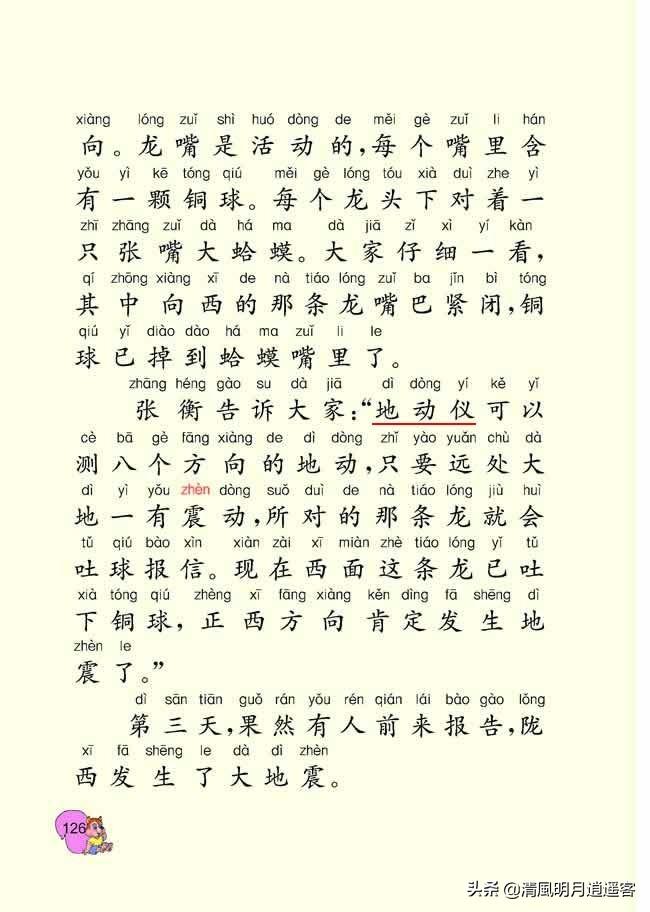 xiàng lóng zuǐ shì huó dòng de měi gè zuǐ li hán
向。龙嘴是活动的，每个嘴里含
yǒu yì kē tóng qiú měi gè lóng tóu xià duì zhe yì
有一颗铜球。每个龙头下对着一
zhī zhāng zuǐ dà há ma dà jiā zǐ xì yí kàn
只张嘴大蛤蟆。大家仔细一看，
qí zhōng xiàng xī de nà tiáo lóng zuǐ ba jǐn bì tóng
其中向西的那条龙嘴巴紧闭，铜
qiú yǐ diào dào há ma zuǐ li le
球已掉到蛤蟆嘴里了。
zhāng héng gào su dà jiā dì dòng yí kě yǐ
张衡告诉大家：“地动仪可以
cè bā gè fāng xiàng de dì dòng zhǐ yào yuǎn chù dà
测八个方向的地动，只要远处大
dì yì yǒu zhèn dòng suǒ duì de nà tiáo lóng jiù huì
地一有震动，所对的那条龙就会
tǔ qiú bào xìn xiàn zài xī miàn zhè tiáo lóng yǐ tǔ
吐球报信。现在西面这条龙已吐
xià tóng qiú zhèng xī fāng xiàng kěn dìng fā shēng dì
下铜球，正西方向肯定发生地
zhèn le
震了。”
dì sān tiān guǒ rán yǒu rén qián lái bào gào lǒng
第三天，果然有人前来报告，陇
xī fā shēng le dà dì zhèn
西发生了大地震。
126
头条 @清風明月逍遥客